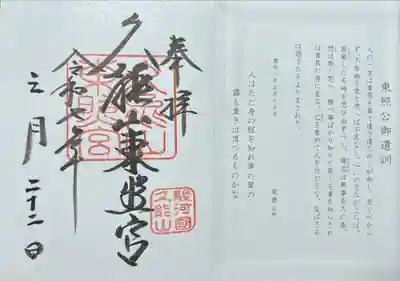 東照公御遺訓
人の一生は重荷を負て遠き道をゆくが如し、急ぐべから
ず、不自由を常と思へば不足なし、心に望おこらば、
困窮したる時を思ひ出すべし、堪忍は無事長久の基、
怒は敵と思へ、勝事ばかり知りて負る事を知らざれ
ば害其の身に至る、己を責めて人を責むるな、及ばざる
は過ぎたるよりまされり、
人はただ身の程を知れ草の葉の
露も重きは落つるものかな
奉拝
久能山東照宮
駿河國
久能山
令和七年
三月二十二日